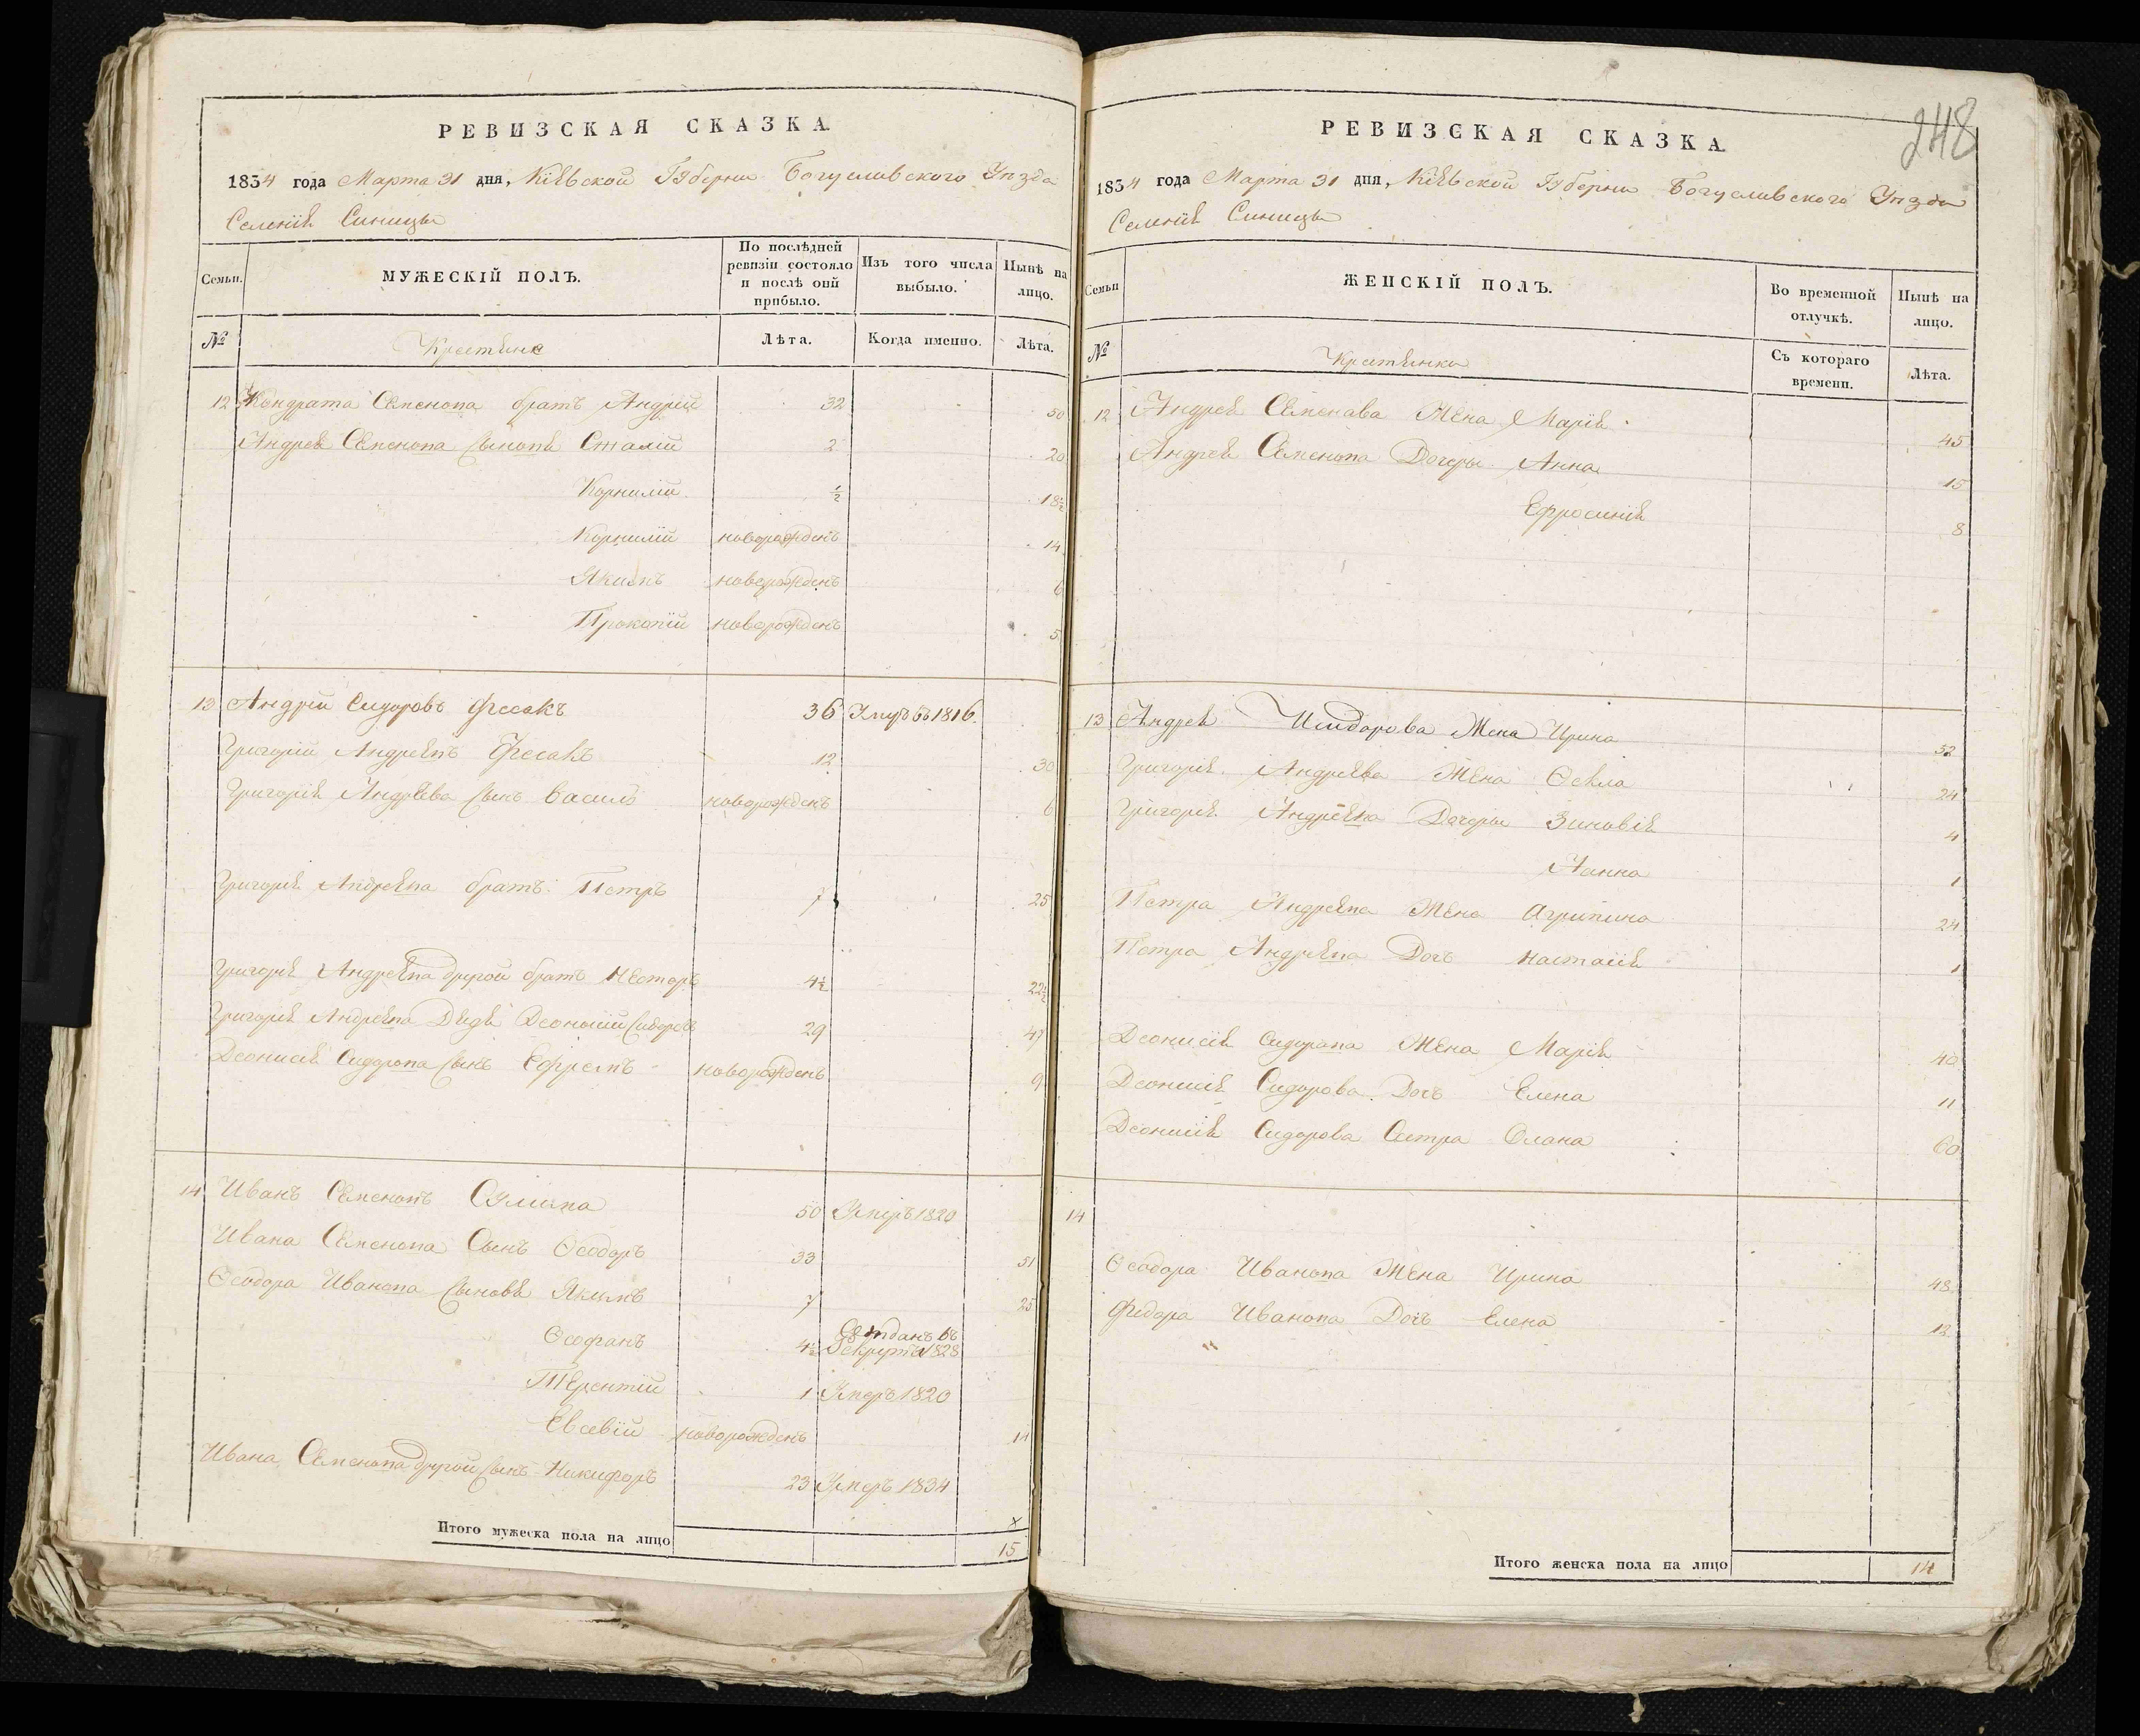 РЕВИЗСКАЯ СКАЗКА
1834 года Марта 31 дня, Кіевской Губерни Богуславского Уѣзда
Селенія Синицы
Семьи. МУЖЕСКІЙ ПОЛЪ. По послѣдней ревизіи состояло и послѣ оной прибыло. Изъ того числа выбыло. Нынѣ на лицо.
№ Крестяне Лѣта. Когда именно. Лѣта.
12 Кондрата Семенова братъ Андрей 32 50
Андрея Семенова сыновя 2 20
Корнилій ½ 18½
Корнилій новорожденъ 14
Якимъ новорожденъ 6
Прокопій новорожденъ 5
13 Андрей Сидоровъ Фесакъ 36 1816
Григорій Андреевъ Фесакъ 12 30
Григорія Андреева сынъ Василь новорожденъ 6
Григорія Андреева братъ Петръ 7 25
Григорія Андреева другой братъ Несторъ 4½ 22½
Григорія Андреева Дядя Деонисій Сидоровъ 29 47
Деонисія Сидорова сынъ Ефремъ новорожденъ 9
14 Иванъ Семеновъ 50 Умеръ 1820
Ивана Семенова Сынъ Ѳеодоръ 33 51
Ѳеодора Иванова сыновя Якимъ 7 25
Ѳеофанъ 4½ Отданъ въ Рекруты 1828
Терентій 1 Умеръ 1820
Евсевій новорожденъ 14
Ивана Семенова другой сынъ Никифоръ 23 Умеръ 1834
Итого мужеска пола на лицо 15
248
РЕВИЗСКАЯ СКАЗКА
1834 года Марта 31 дня, Кіевской Губерни Богуславского Уѣзда
Селенія Синицы
Семьи ЖЕНСКІЙ ПОЛЪ. Во временной отлучкѣ. Нынѣ на лицо.
№ Крестянки Съ котораго времени. Лѣта.
12 Андрея Семенава Жена Марія 45
Андрея Семенова Дочеры Анна 15
Ефросинія 8
13 Андрея Исидорова Жена Ирина 52
Григорія Андреева Жена Ѳекла 24
Григорія Андреева Дочеры Зиновія 4
Анна 1
Петра Андреева Жена Агрипина 24
Петра Андреева Дочъ Настасія 1
Деонисія Сидорова Жена Марія 40
Деонисія Сидорова Дочъ Елена 11
Деонисія Сидорова Сестра Олана 60
14
Ѳеодора Иванова Жена Ирина 48
Федора Иванова Дочъ Елена 12
Итого женска пола на лицо 14